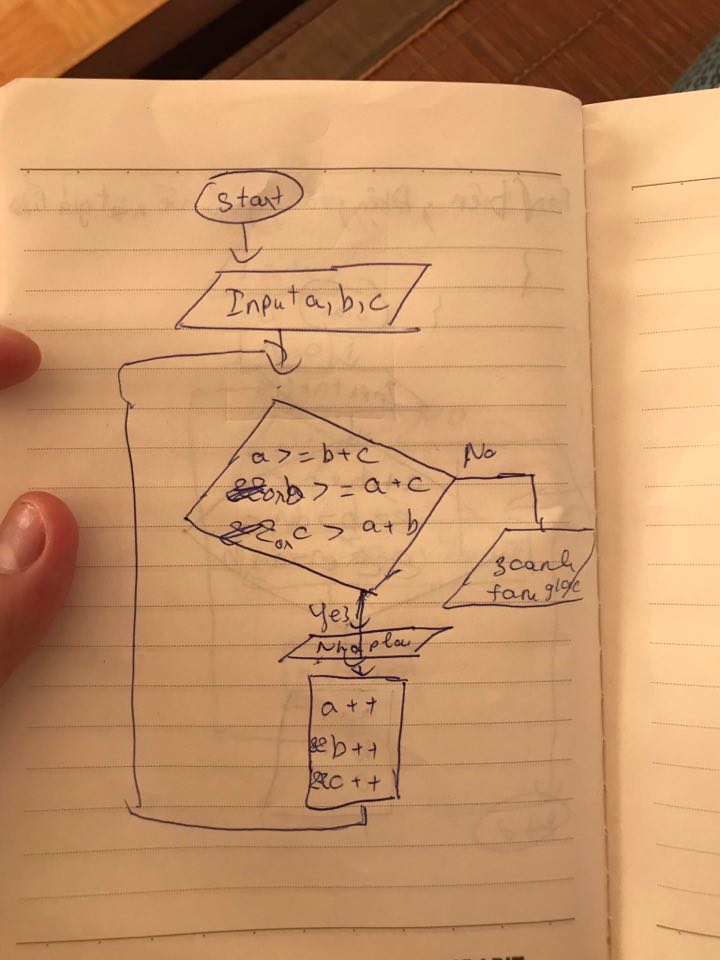 Start
Input a, b, c
a >= b + c
or b >= a + c
or c > a + b
No
3 canh
tam giac
Yes
Nhap lai
a++
&&b++
&&c++